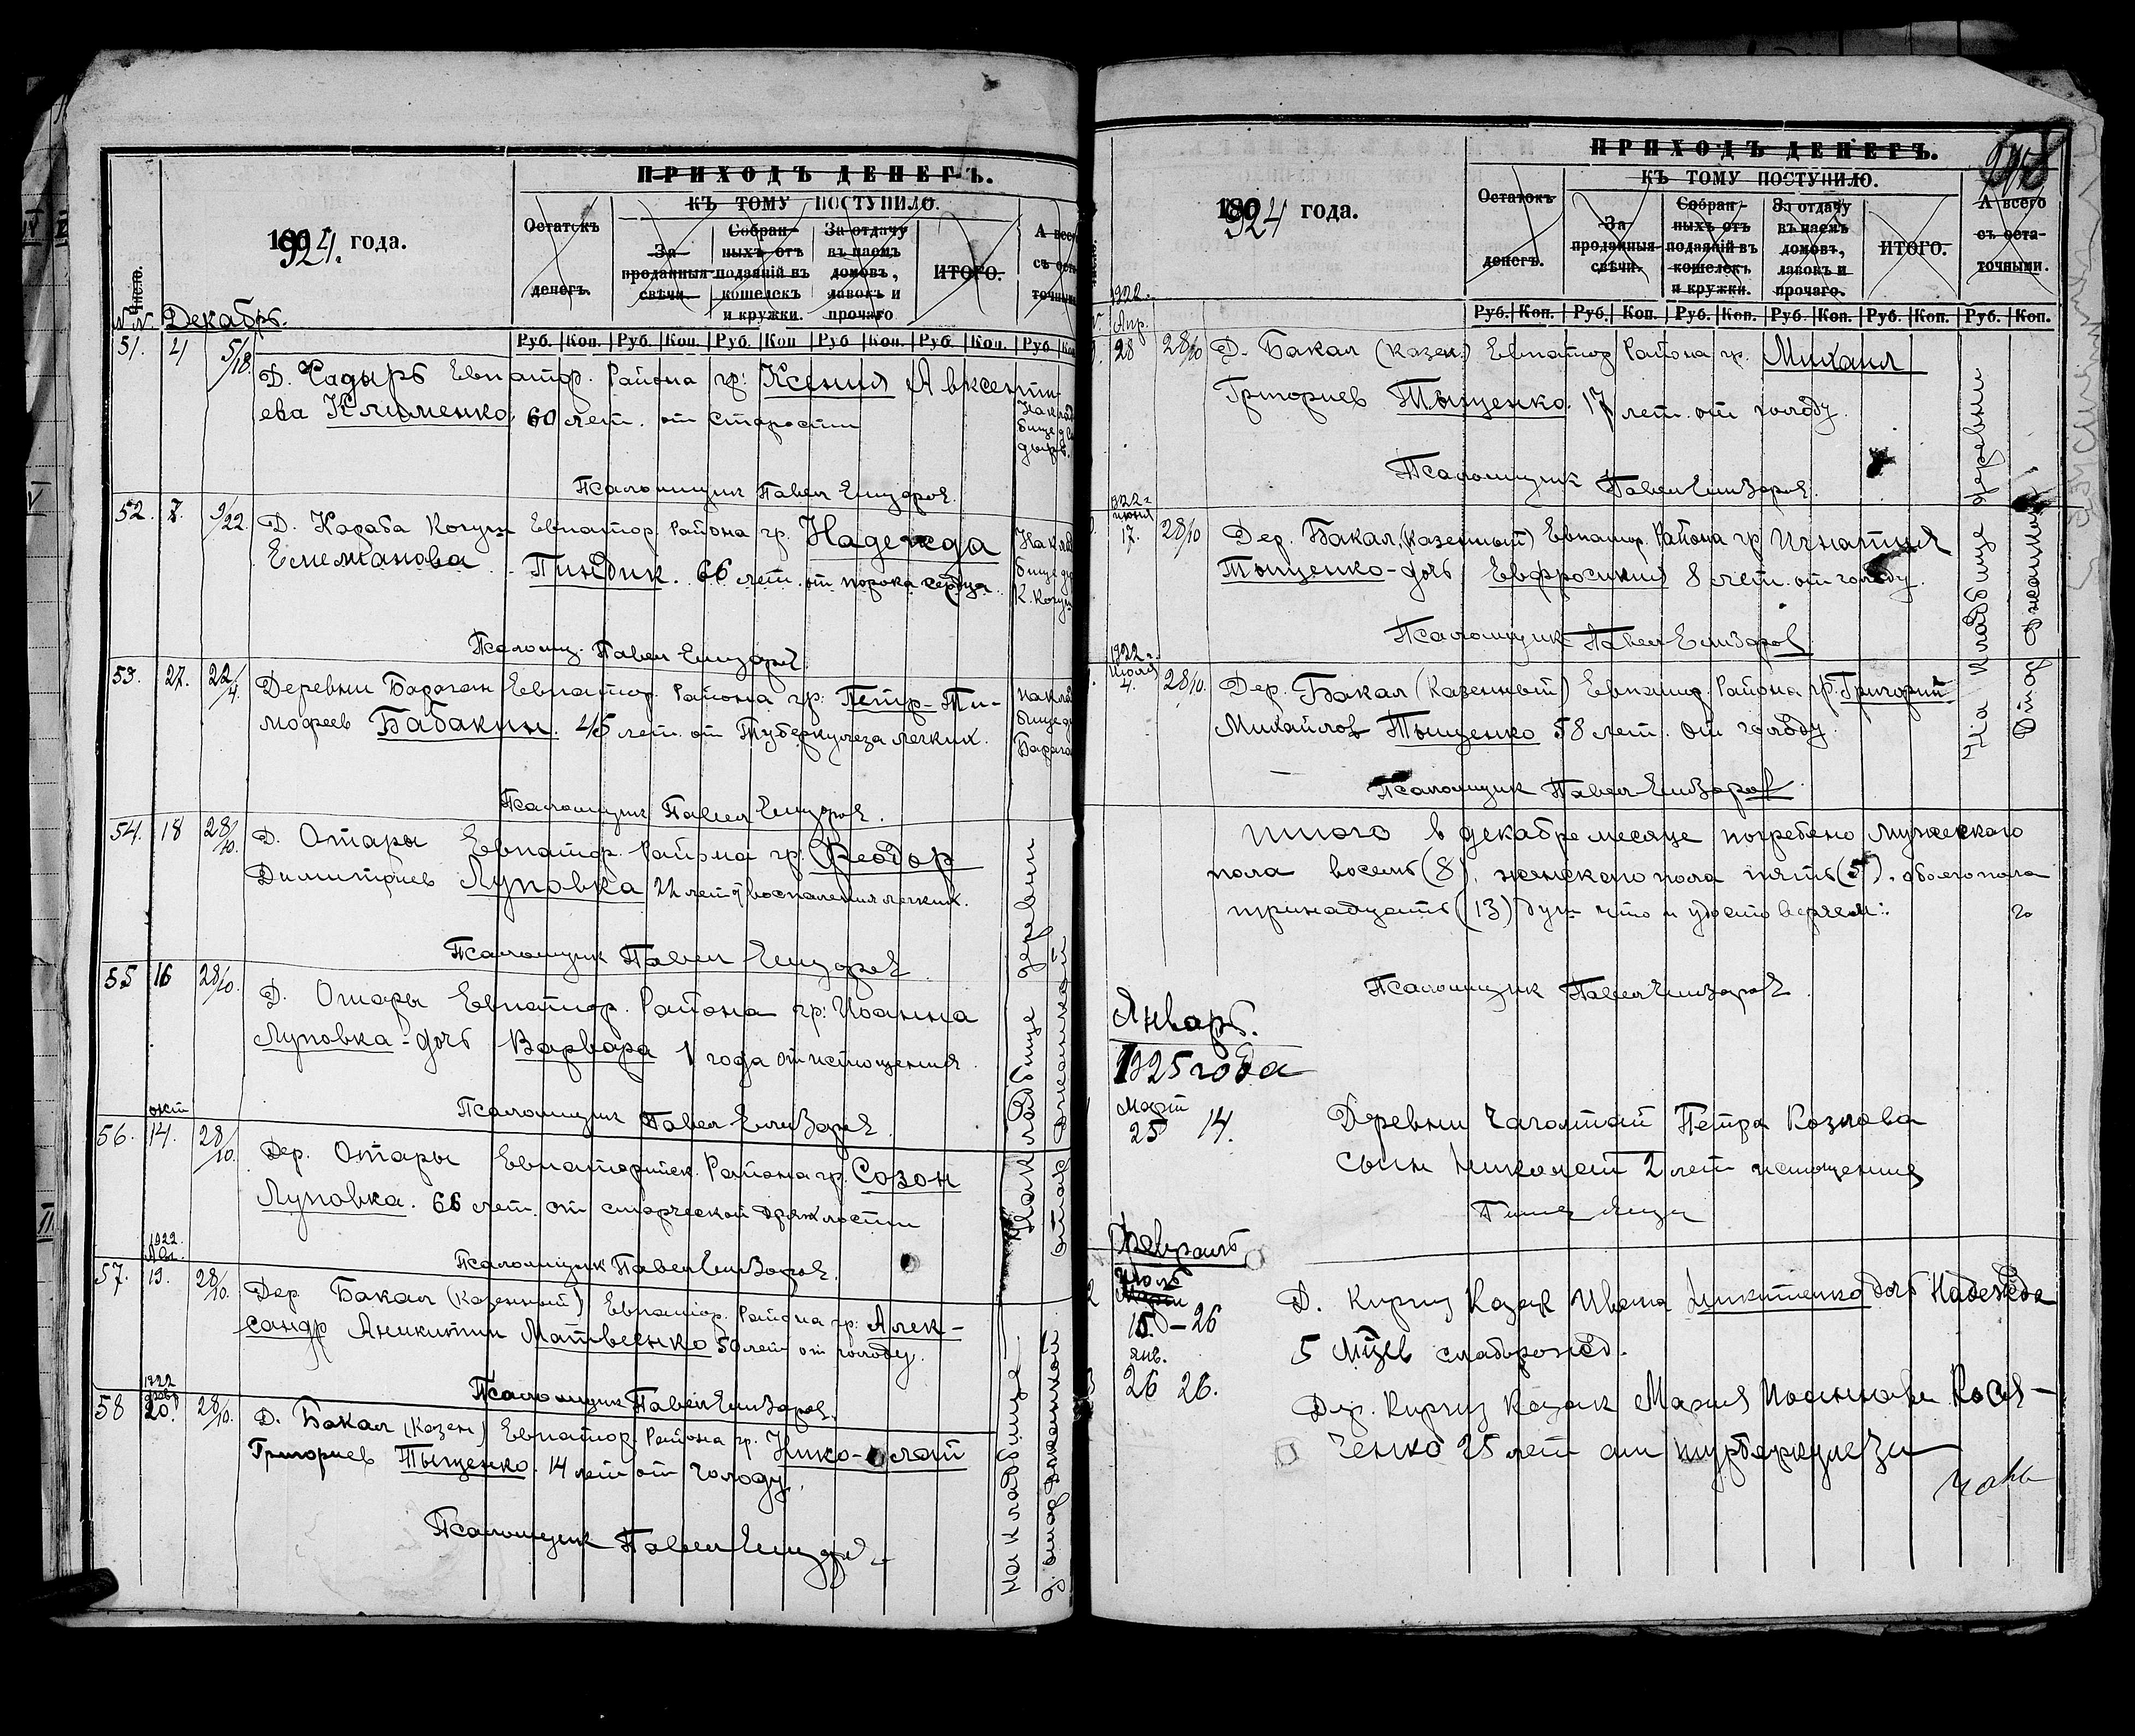 ПРИХОДЪ ДЕНЕГЪ.
КЪ ТОМУ ПОСТУПИЛО.
1924 года.
Остатокъ денегъ.
За проданныя свѣчи.
Собранныхъ отъ подаяній въ кошелекъ и кружки.
За отдачу въ наемъ домовъ, лавокъ и прочаго
ИТОГО.
Число.
№№ Декабрь.
Руб. Коп. Руб. Коп. Руб. Коп Руб Коп. Руб. Коп. Руб
51. 4 5/18. Д. Садырь Евпатор. Района гр: Ксения Авксенти-
ева Клименко, 60 лет. от старости
Псаломщик Павел Елизаров.
52. 7. 9/22. Д. Караба Когуш Евпатор. Района гр. Надежда
Емельянова Пиндик. 66 лет. от порока сердца.
Псаломщ. Павел Елизаров.
53. 27. 22/4. Деревни Бараган Евпатор. Района гр: Петр Ти-
мофеев Бабакин. 45 лет. от Туберкулеза легких.
Псаломщик Павел Елизаров.
54. 18 28/10. Д. Отары Евпатор. Района гр. Феодор
Димитриев Луповка 22 лет воспаления легких.
Псаломщик Павел Елизаров
55 16 28/10. Д. Отары Евпатор. Района гр: Иоанна
Луповка - дочь Варвара 1 года от истощения.
Псаломщик Павел Елизаров.
окт
56. 14. 28/10. Дер. Отары Евпаторийск. Района гр. Созон
Луповка. 66 лет. от старческой дряхлости
Псаломщик Павел Елизаров.
1922.
57. 13. 28/10. Дер. Бакал (Казенный) Евпатор. Района гр: Алек-
сандр Аникитин Матвеенко 50 лет от голоду.
Псаломщик Павел Елизаров.
1922
58 20. 28/10. Д. Бакал (Казен) Евпатор. Района гр. Нико-лай
Григориев Тыщенко. 14 лет от голоду.
Псаломщик Павел Елизаров
На кладбище деревни
На кладбище
ПРИХОДЪ ДЕНЕГЪ.
КЪ ТОМУ ПОСТУПИЛО.
1924 года.
Остатокъ денегъ.
За проданныя свѣчи.
Собранныхъ отъ подаяній въ кошелекъ и кружки.
За отдачу въ наемъ домовъ, лавокъ и прочаго.
ИТОГО.
А всего съ остаточными.
Руб. Коп. Руб. Коп. Руб. Коп. Руб. Коп. Руб. Коп. Руб. Коп.
1922.
Апр.
28 28/10 Д. Бакал (казен.) Евпатор Района гр. Михаил
Григориев Тыщенко. 17 лет. от голоду.
Псаломщик Павел Елизаров.
1922 г
июня
17. 28/10 Дер. Бакал, (казенный) Евпатор. Района гр Игнатия
Тыщенко - дочь Евфросиния 8 лет. от голоду.
Псаломщик Павел Елизаров
1922 г.
Июля
4. 28/10. Дер. Бакал (Казенный) Евпатор. Района гр. Григорий
Михайлов Тыщенко 58 лет. от голоду.
Псаломщик Павел Елизаров
На кладбище деревни
Отар Джалман
итого в декабре месяце погребено мужеского
пола восемь (8), женского пола пять (5). обоего пола
тринадцать (13) душ что и удостоверяем:
Псаломщик Павел Елизаров.
Январь.
1925 года
Март
25 14. Деревни Чаголтай Петра Козлова
сын Николай 2 лет истощения
Февраль
Июль
15 - 26 Д. Кирк Казак Ивана Никитенко дочь Надежда
5 мцев слаборожд.
янв.
26 26. Дер. Кирк Казак Мария Иоаннова Кося-
ченко 25 лет от туберкулеза